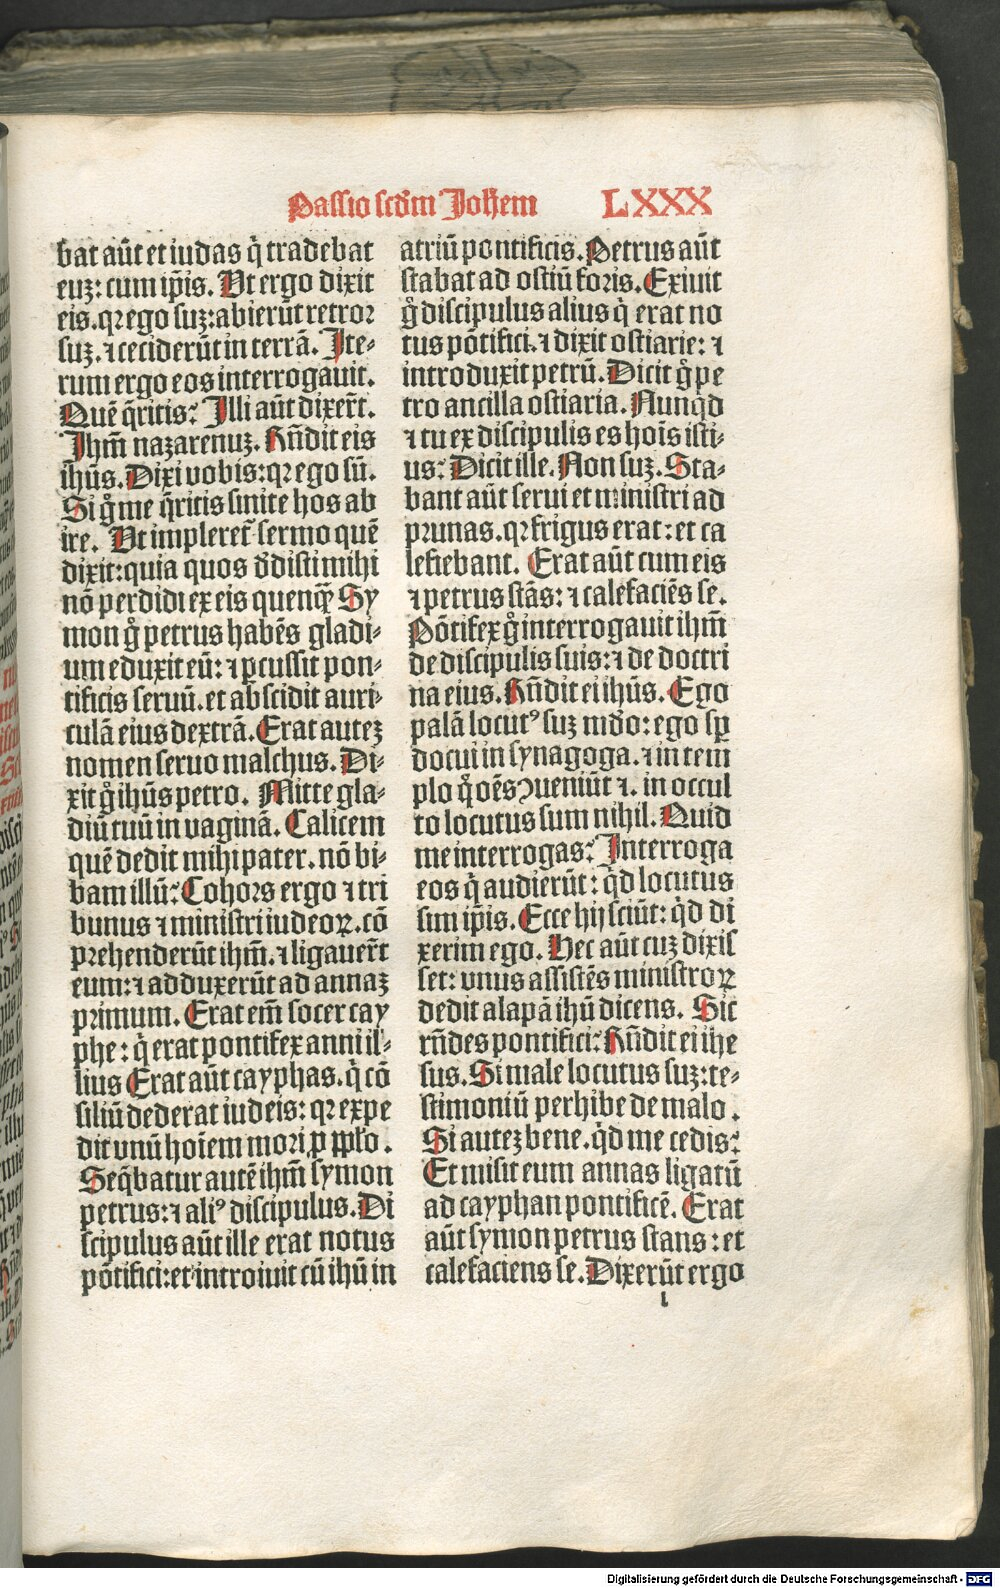 Passio scd̄m Joħem LXXX
bat aūt et iudas q̇ tradebat
euꝫ: cum ip̄is. Ut ergo dixit
eis. qꝛ ego suꝫ: abierūt retroꝛ
suꝫ. ⁊ ceciderūt in terrā. Ite-
rum ergo eos interrogauit.
Quē q̄ritis? Illi aūt dixer̄t.
Jhm̄ nazarenuꝫ. Rn̄dit eis
ihūs. Dixi uobis: qꝛ ego sū.
Si g̊ me q̄ritis sinite hos ab
ire. Ut impleret᷑ sermo quē
dixit: quia quos ddisti mihi
nō perdidi ex eis quenqꝫ Sy
mon g̊ petrus habēs gladi-
um eduxit eū: ⁊ ꝑcussit pon-
tificis seruū. et abscidit auri-
culā eius dextrā. Erat auteꝫ
nomen seruo malchus. Di-
xit g̊ ihūs petro. Mitte gla-
diū tuū in vaginā. Calicem
quē dedit mihi pater. nō bi-
bam illū? Cohors ergo ⁊ tri
bunus ⁊ ministri iudeoꝝ. cō
prehenderūt ihm̄. ⁊ ligauer̄t
eum: ⁊ adduxerūt ad annaꝫ
primum. Erat em̄ socer cay
phe: q̇ erat pontifex anni il-
lius Erat aūt cayphas. q̇ cō
siliū dederat iudeis: qꝛ expe
dit unū hoīem mori ꝓ pp̄lo.
Seq̄batur autē ihm̄ symon
petrus: ⁊ aliꝰ discipulus. Di
scipulus aūt ille erat notus
pōtifici: et introiuit cū ihū in
atriū pontificis. Petrus aūt
stabat ad ostiū foris. Exiuit
g̊ discipulus alius q̇ erat no
tus pōtifici. ⁊ dixit ostiarie: ⁊
introduxit petrū. Dicit g̊ pe
tro ancilla ostiaria. Nunqd
⁊ tu ex discipulis es hoīs isti-
us? Dicit ille. Non suꝫ. Sta-
bant aūt serui et ministri ad
prunas. qꝛ frigus erat: et ca
lefiebant. Erat aūt cum eis
⁊ petrus stās: ⁊ calefaciēs se.
Pōtifex g̊ interrogauit ihm̄
de discipulis suis: ⁊ de doctri
na eius. Rn̄dit ei ihūs. Ego
palā locutꝰ suꝫ mdo: ego sꝑ
docui in synagoga. ⁊ in tem
plo q̊ oēs ↄueniūt ⁊. in occul
to locutus sum nihil. Quid
me interrogas? Interroga
eos q̇ audierūt: qd locutus
sum ip̄is. Ecce hij sciūt: qd di
xerim ego. Hec aūt cuꝫ dixis
set: vnus assistēs ministroꝝ
dedit alapā ihū dicens. Sic
rn̄des pontifici? Rn̄dit ei ihe
sus. Si male locutus suꝫ: te-
stimoniū perhibe de malo.
Si autez bene. qd me cedis?
Et misit eum annas ligatū
ad cayphan pontificē. Erat
aūt symon petrus stans: et
calefaciens se. Dixerūt ergo
l
Digitalisierung gefördert durch die Deutsche Forschungsgemeinschaft - DFG